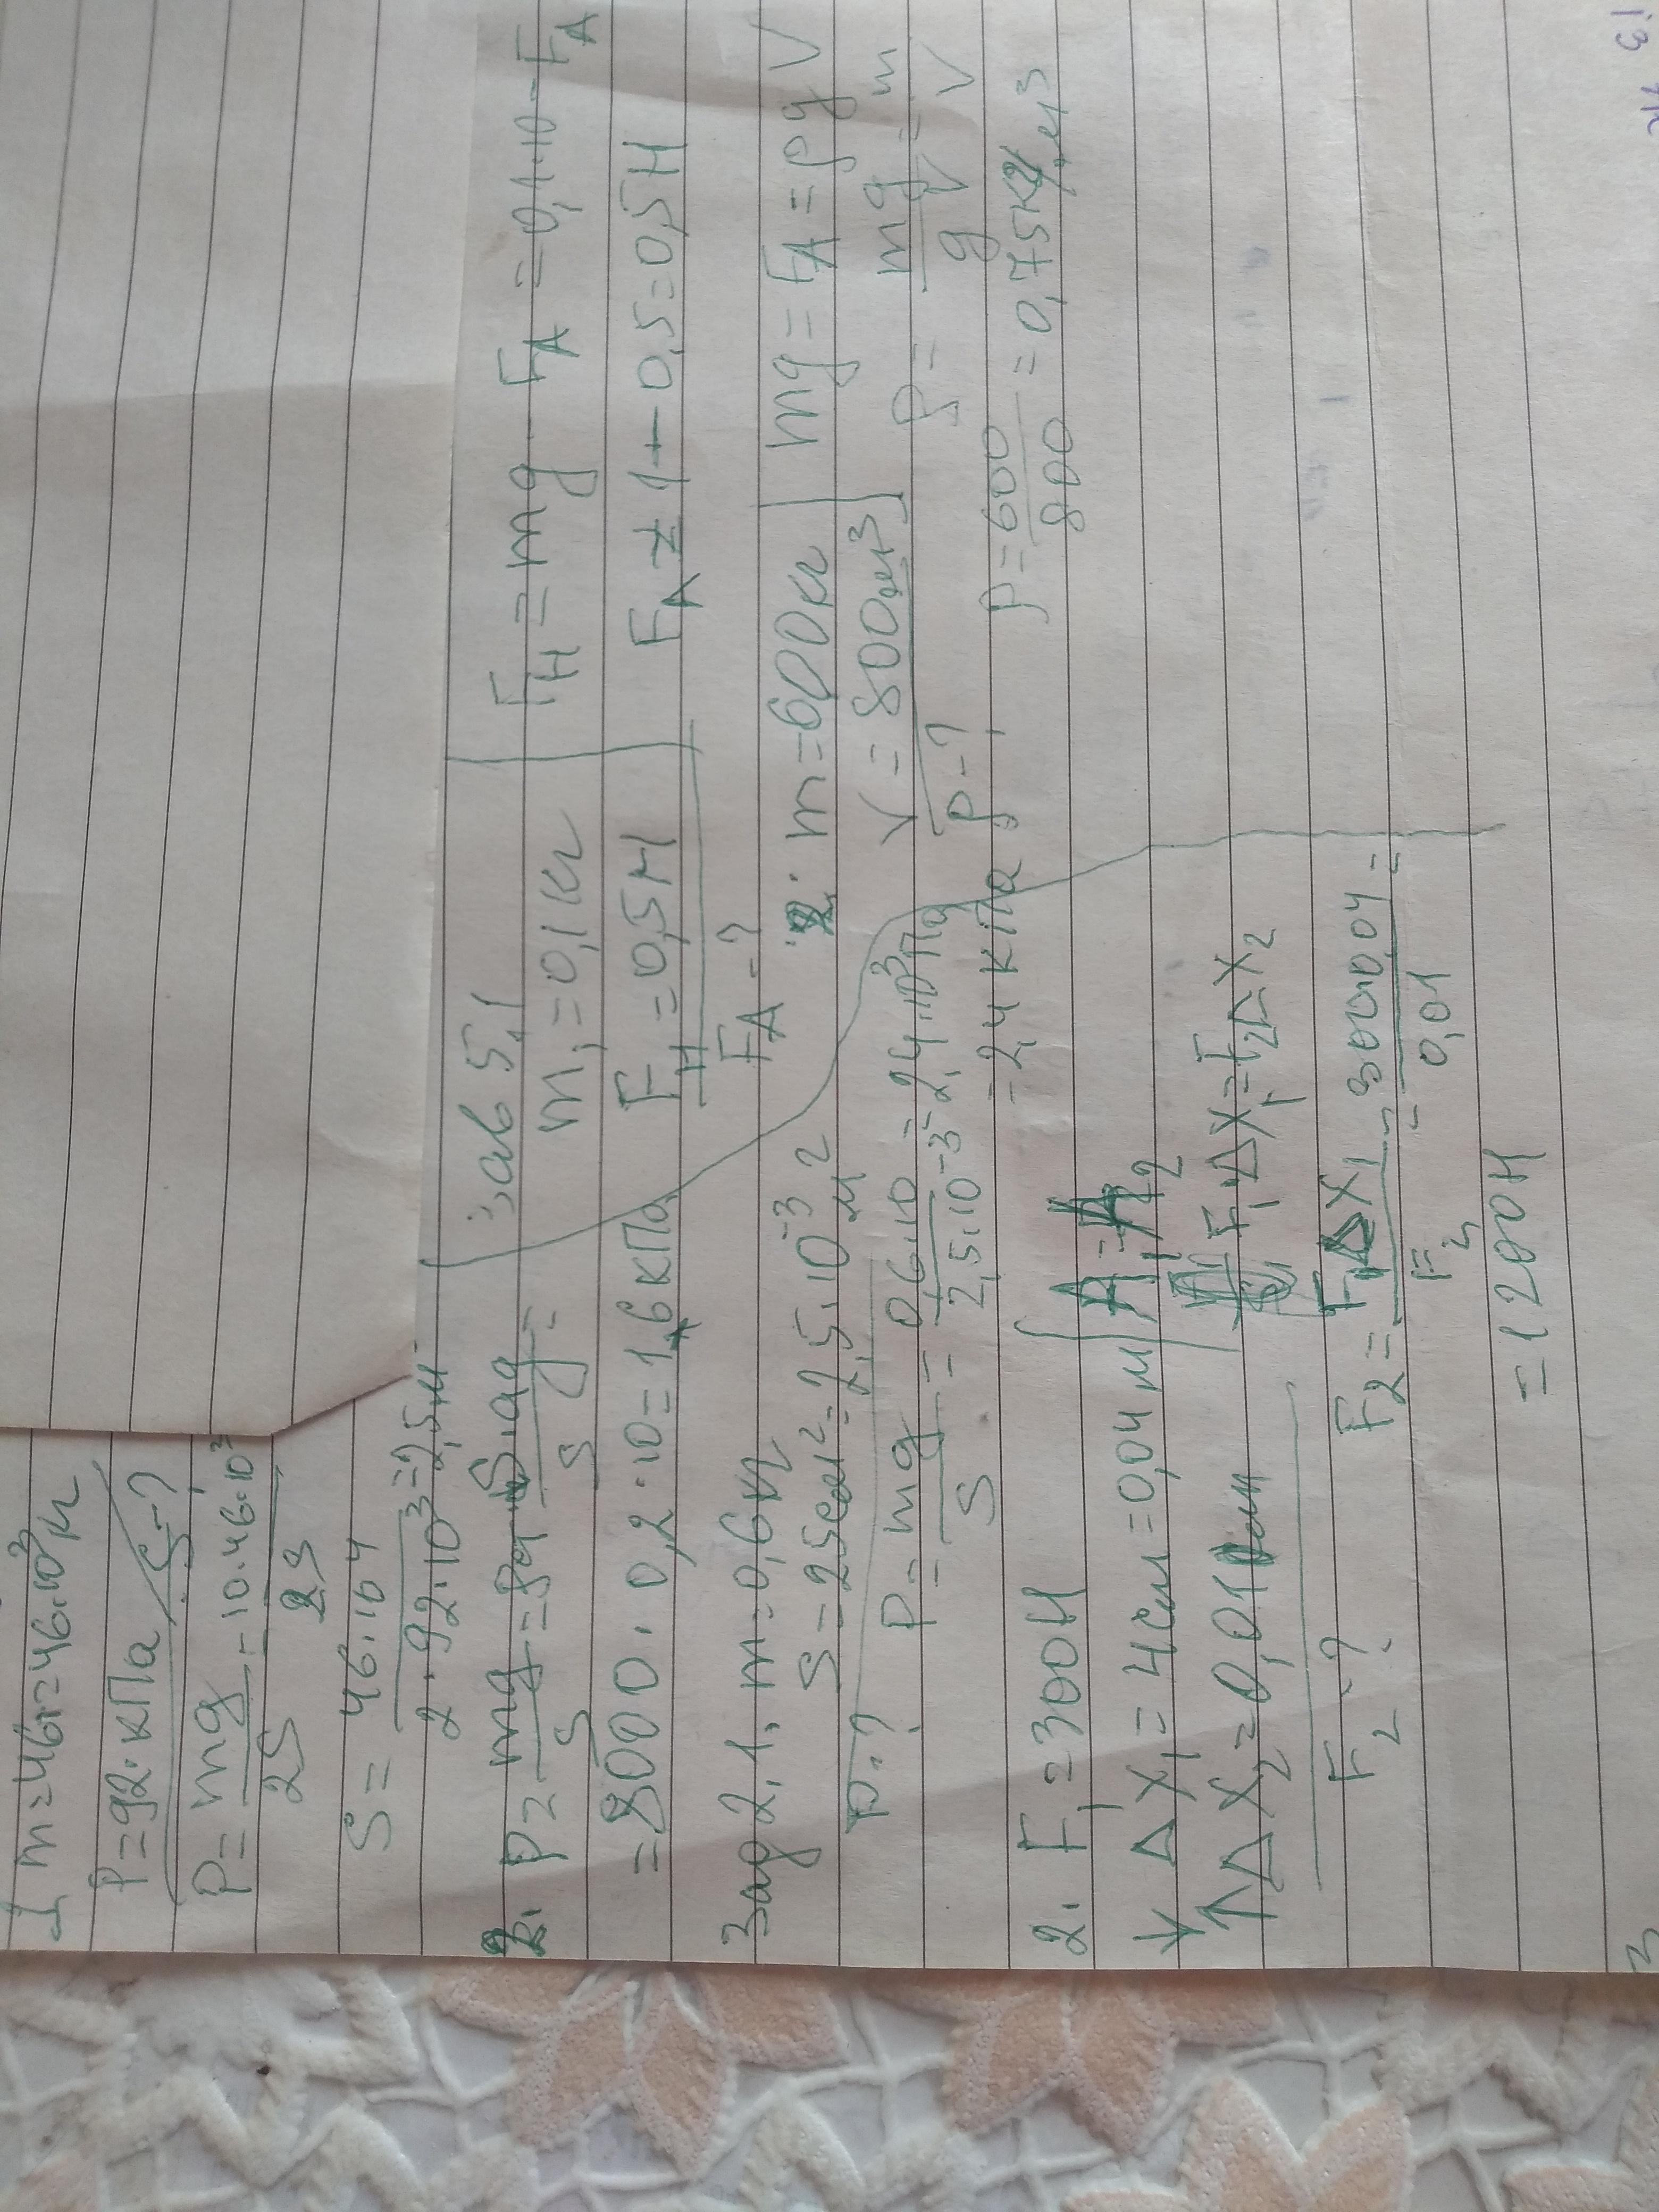 1 m=46т=46·10³кг
P=92·кПа S-?
P=mg/2S=10·46·10³/2S
S=46·10⁴/2·92·10³=2,5м
2. P=mg/S=ρg
=8000·0,2·10=1,6кПа
Зад 2,1. m=0,6кг
S=25см²=2,5·10⁻³м²
p-?
P=mg/S=0,6·10/2,5·10⁻³=2,4·10³Па
=2,4кПа
2. F₁=300Н
↓ΔX₁=4см=0,04м
↑ΔX₂=0,01м
F₂-?
A₁=A₂
F₁·ΔX₁=F₂ΔX₂
F₂=F₁ΔX₁/F₂=300·0,04/0,01=
=1200Н
зав 5,1
m₁=0,1кг
F_H=0,5Н
F_A-?
F_H=mg-F_A=0,1·10-F_A
F_A=1-0,5=0,5Н
2. m=600кг
V=800м³
ρ-?
mg=F_A=ρgV
ρ=mg/gV=m/V
ρ=600/800=0,75кг/м³
3